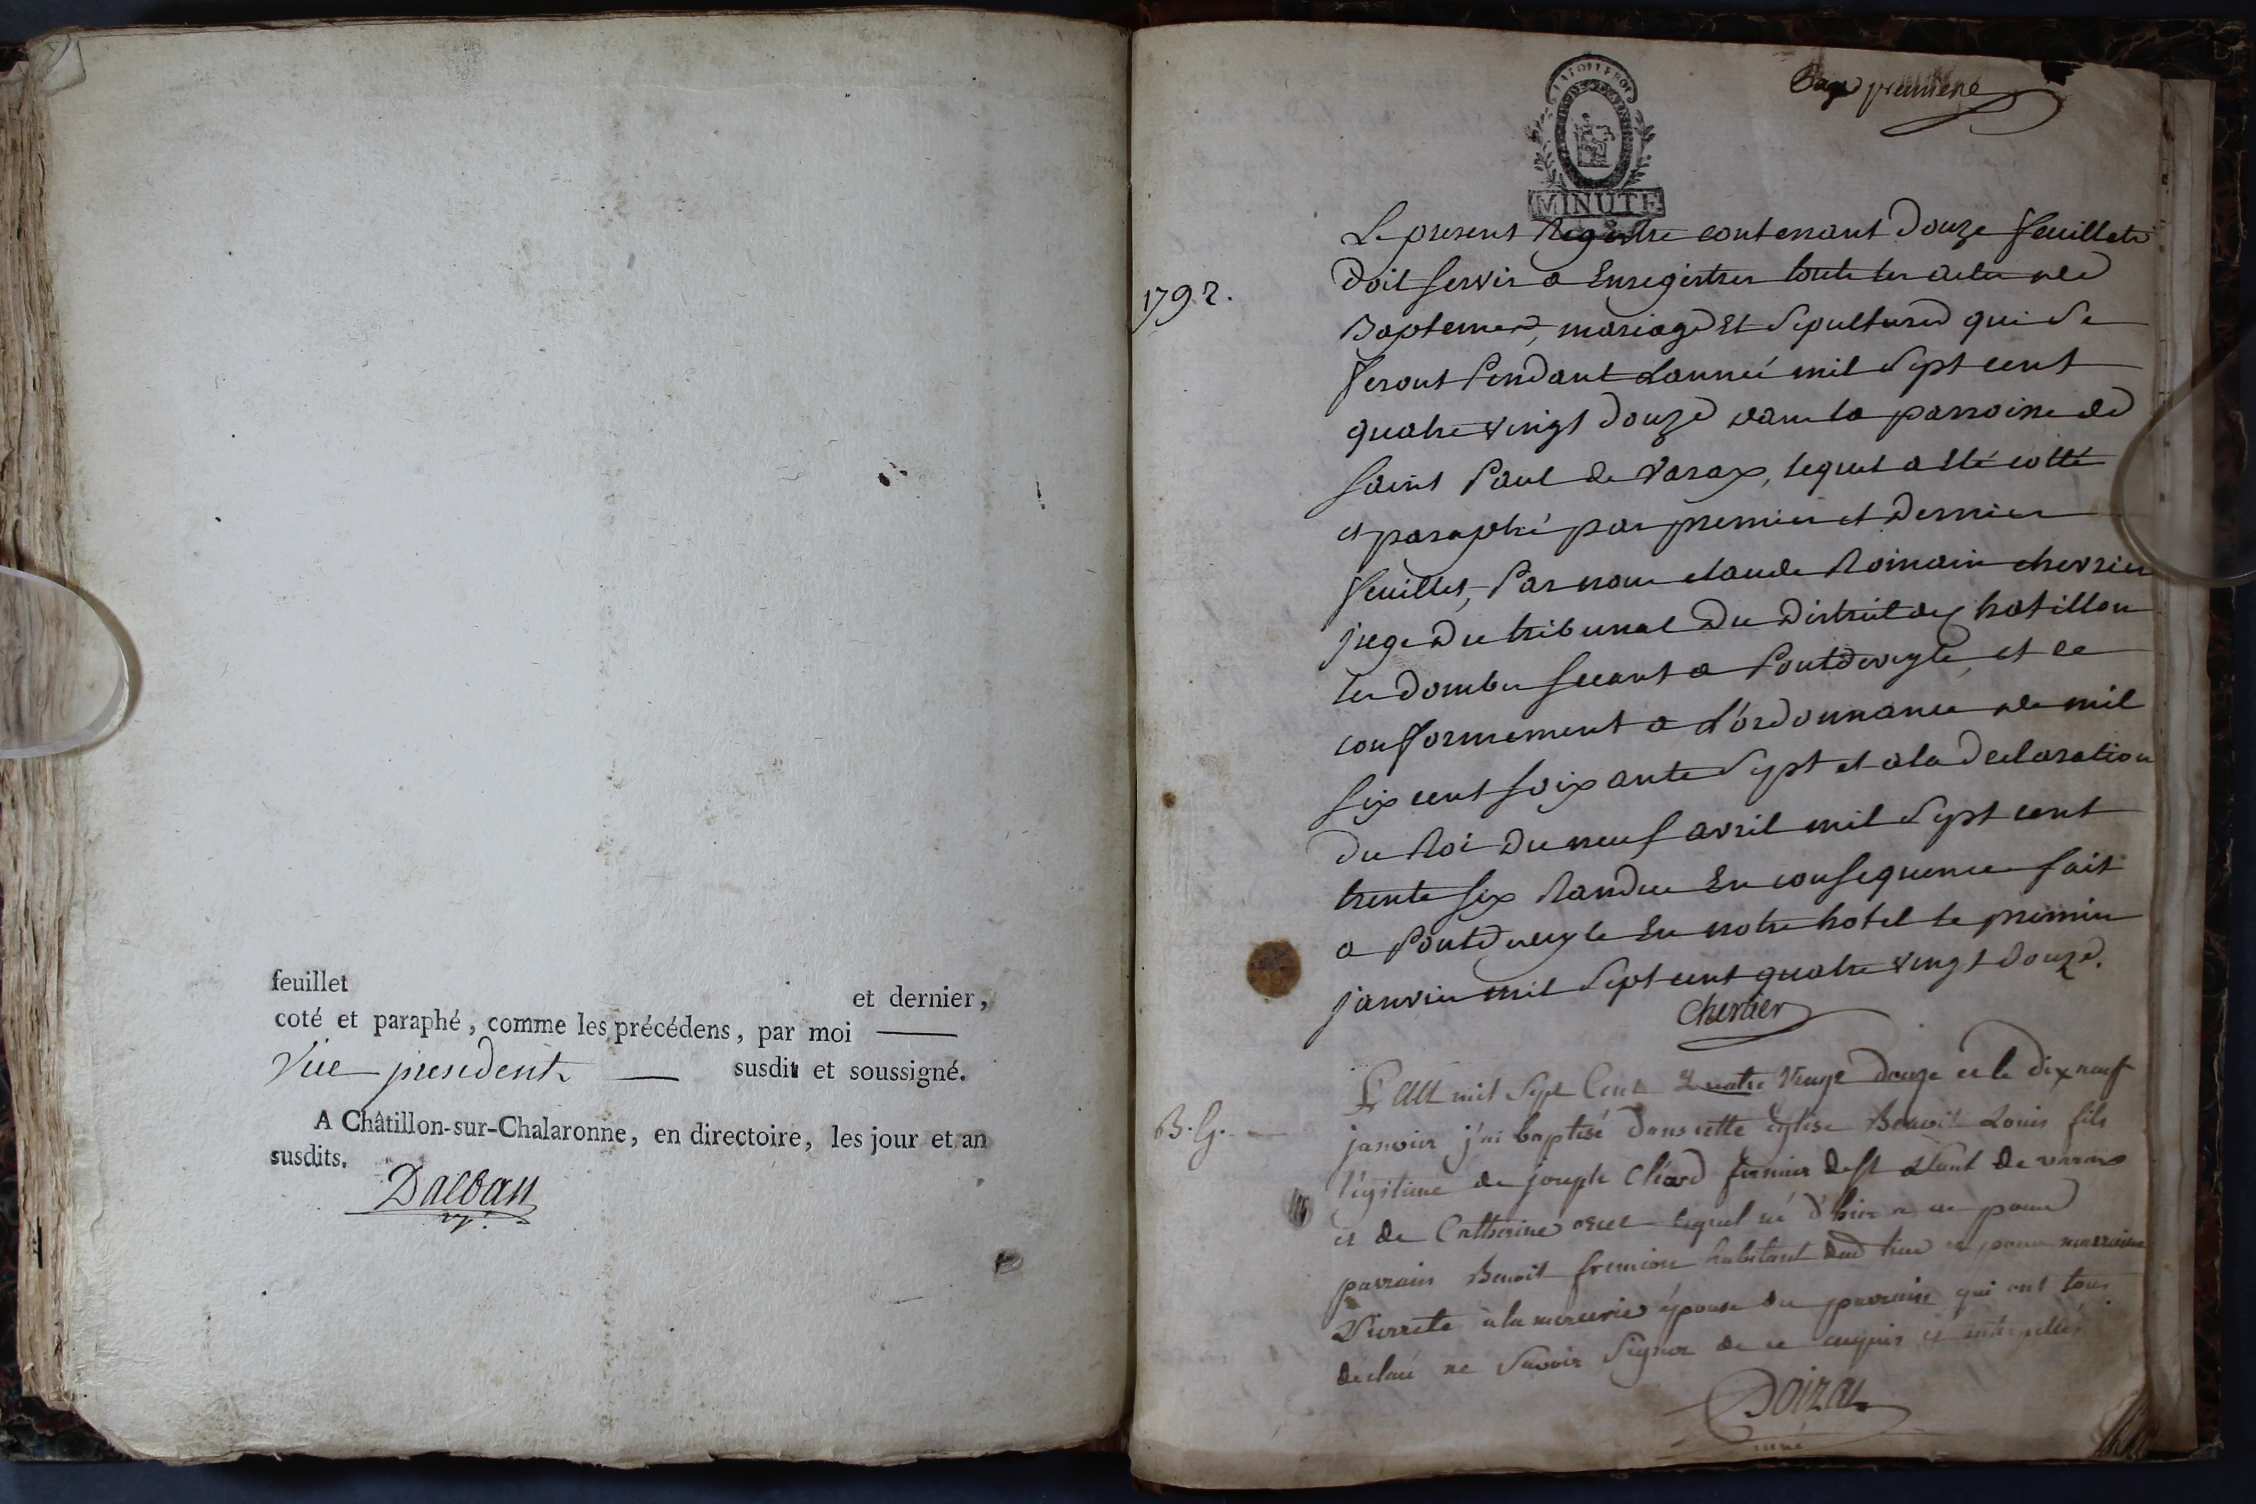 feuillet et dernier,
coté et paraphé, comme les précédens, par moi
Vice president susdit et soussigné.
A Châtillon-sur-Chalaronne, en directoire, les jour et an
susdits.
Dalban
v.p.
Page premiere
LA LOI ET LE ROI
MINUTE
1792.
Le present Registre contenant douze feuillets
doit servir a Enregistrer toute les actes de
Baptemes, mariage Et Sepultures qui se
feront Pendant L'année mil Sept cent
quatre vingt douze dans la parroisse de
Saint Paul de Varax, lequel a Eté cotté
et paraphé par premier et Dernier
feuillet, Par nous claude Romain chevrier
juge Du tribunal Du District de Chatillon
les dombes seant a Pontdeveyle, et ce
conformement a L'ordonnance de mil
six cent soixante Sept et a la Declaration
du Roi Du neuf avril mil Sept cent
trente six Randue En consequence fait
a Pontdeveyle En notre hotel le premier
janvier mil Sept cent quatre vingt douze.
Chevrier
B. G.
L'an mil Sept Cent Quatre Vingt Douze et le Dix neuf
janvier j'ai baptisé dans cette église Benoit Louis fils
légitime de joseph Chard fermier de St Paul de varax
et de Catherine lequel né d'hier a eu pour
parrain Benoit habitant dud lieu et pour marraine
Pierrette a la mercerie épouse du parrain qui ont tous
declaré ne Savoir Signer de ce enquis et interpellés